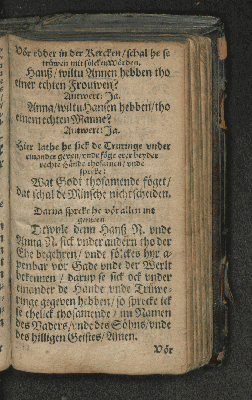 Vör edder in der Kercken / schal he se
trüwen mit sölcken Wörden.
Hanß / wiltu Annen hebben tho
einer echten Frouwen?
Antwort: Ja.
Anna / wiltu Hansen hebben / tho
einem echten Manne?
Antwort: Ja.
Hier lathe he sick de Truringe vnder
einander geven / vnde föge erer beyder
rechte Hände thosamen / vnde
spreke:
Wat Godt thosamende föget /
dat schal de Minsche nicht scheiden.
Darna spreke he vör allen int
gemein
Dewyle denn Hanß N. vnde
Anna N. sick vnder andern tho der
Ehe begehren / vnde sölckes hyr a-
penbar vor Gade vnde der Werlt
bekennen / darup se sick ock vnder
einander de Hände vnde Trüwe-
ringe gegeven hebben / so spreke ick
se ehelick thosamende / im Namen
des Vaders / vnde des Söhns / vnde
des hilligen Geistes / Amen.
Vör